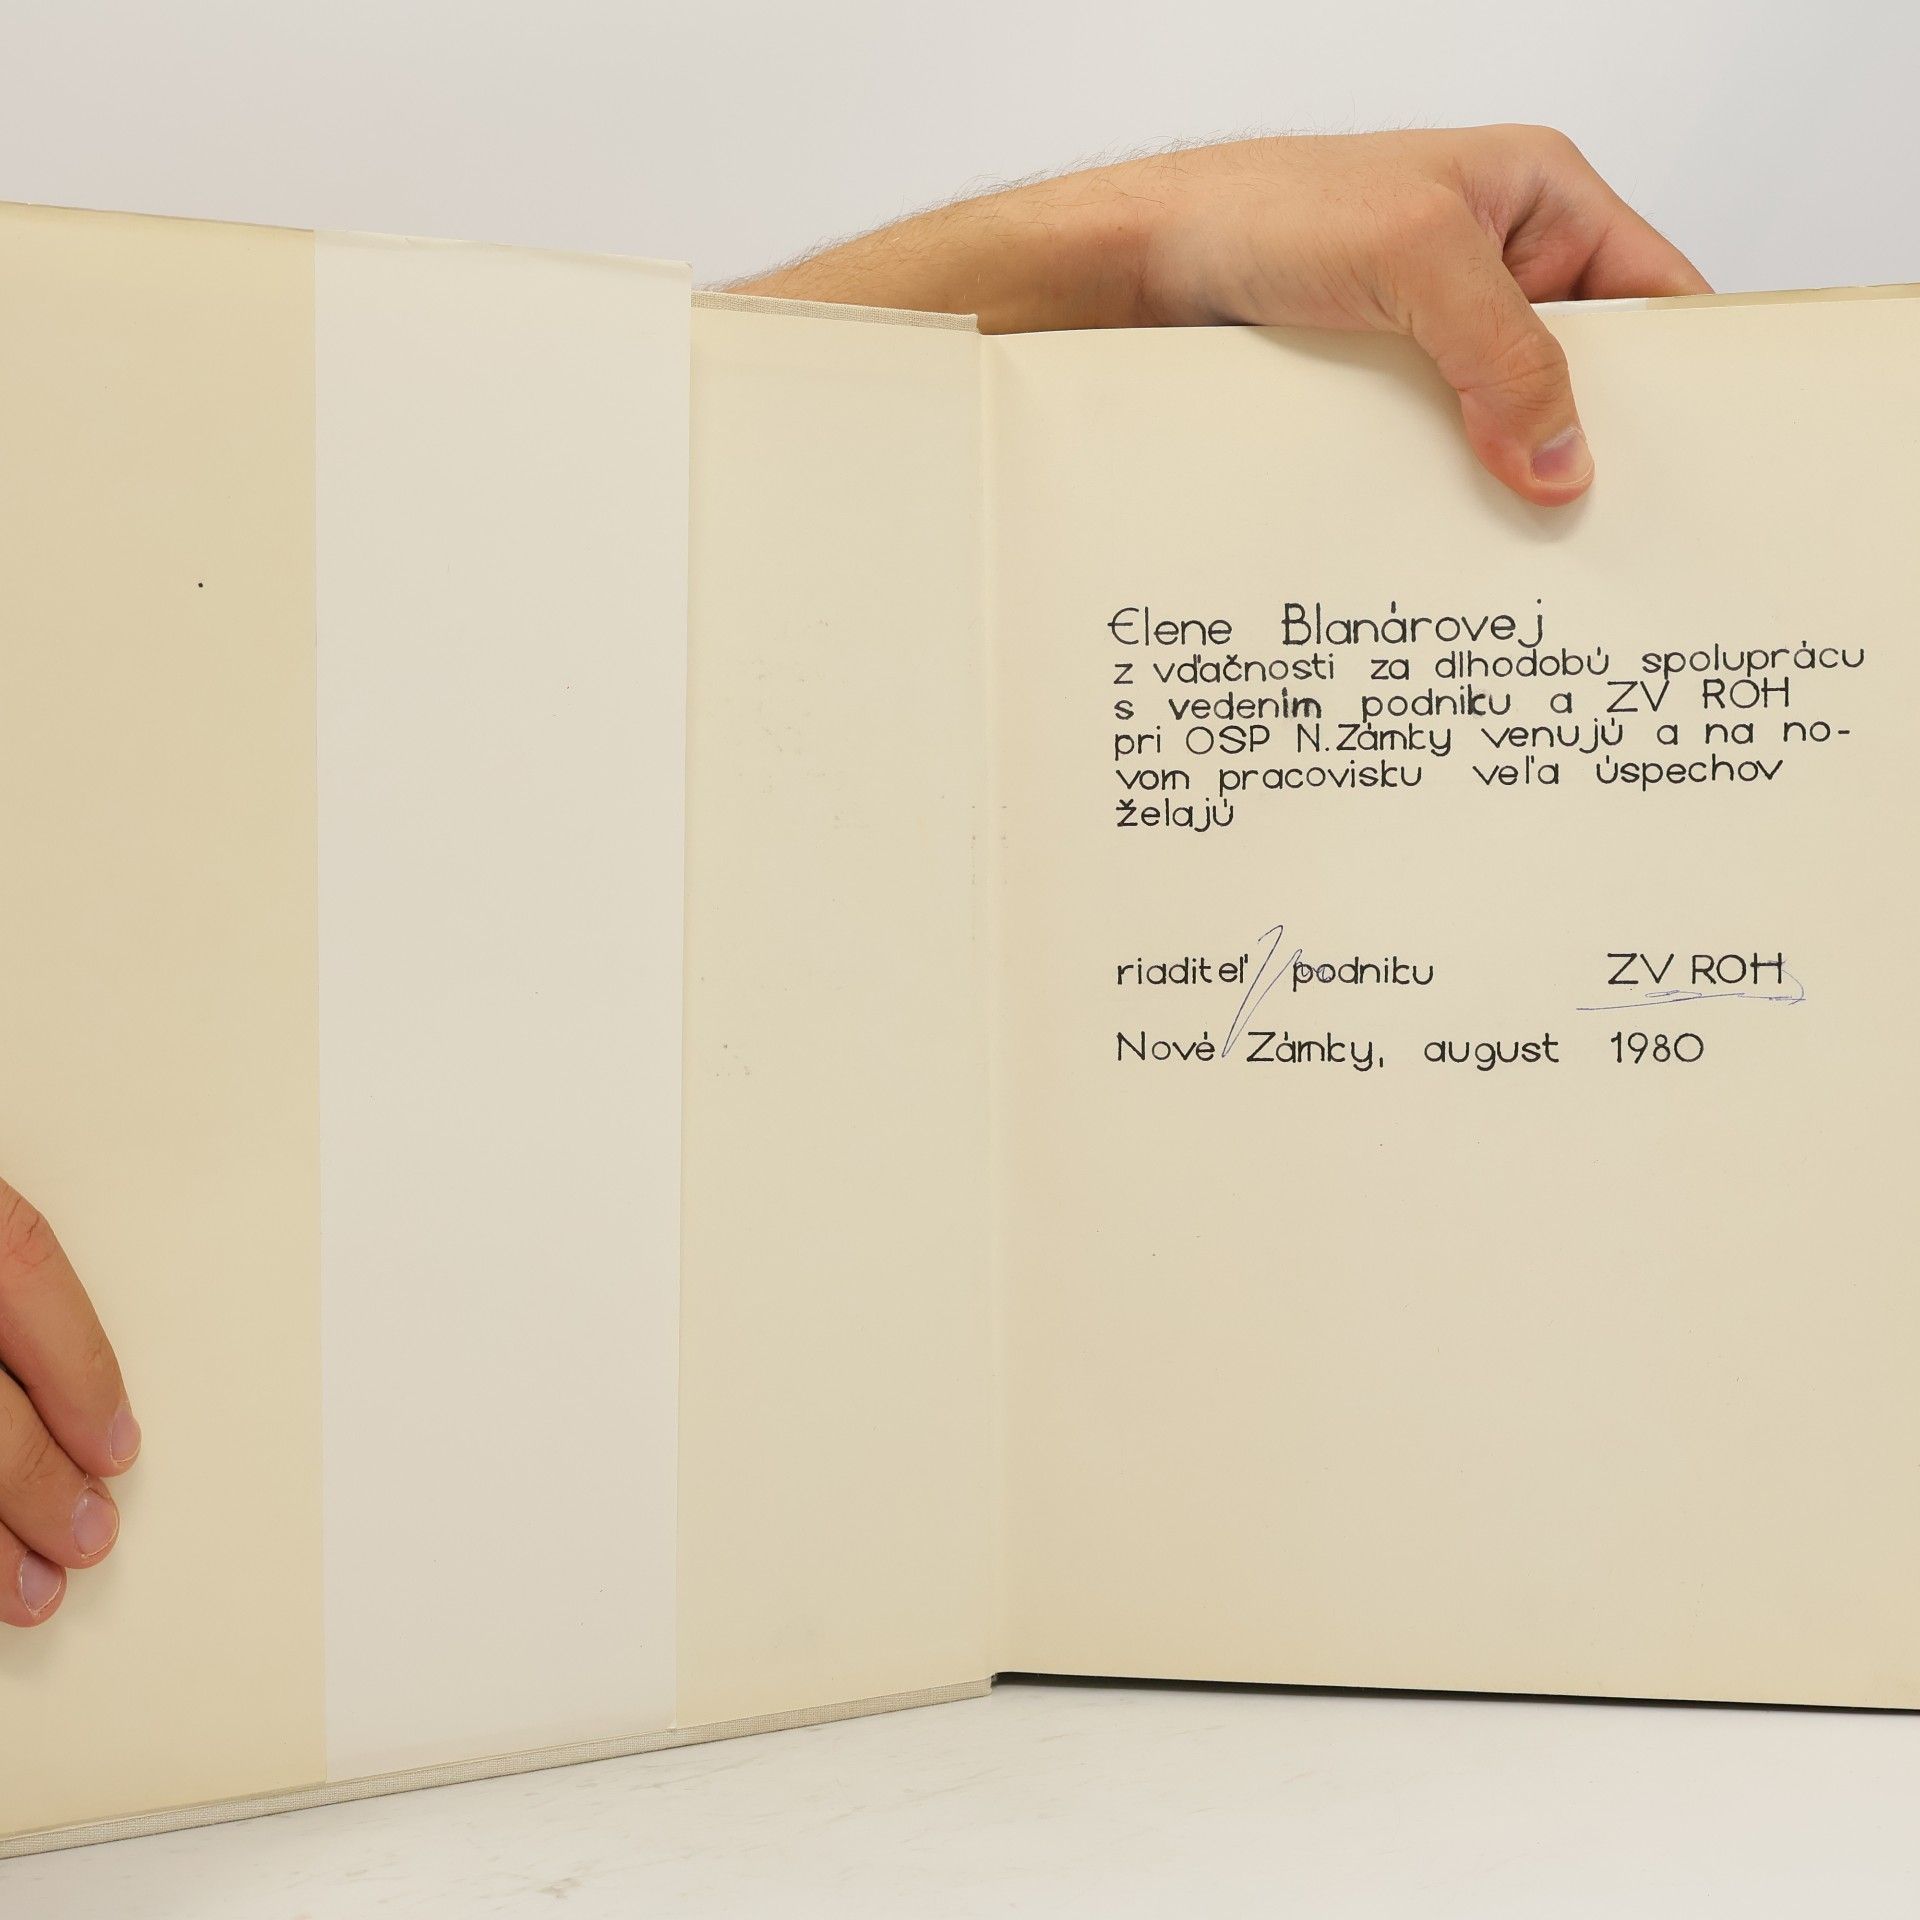 Elene Blanárovej
z vďačnosti za dlhodobú spoluprácu
s vedením podniku a ZV ROH
pri OSP N. Zámky venujú a na no-
vom pracovisku veľa úspechov
želajú
riaditeľ podniku ZV ROH
Nové Zámky, august 1980